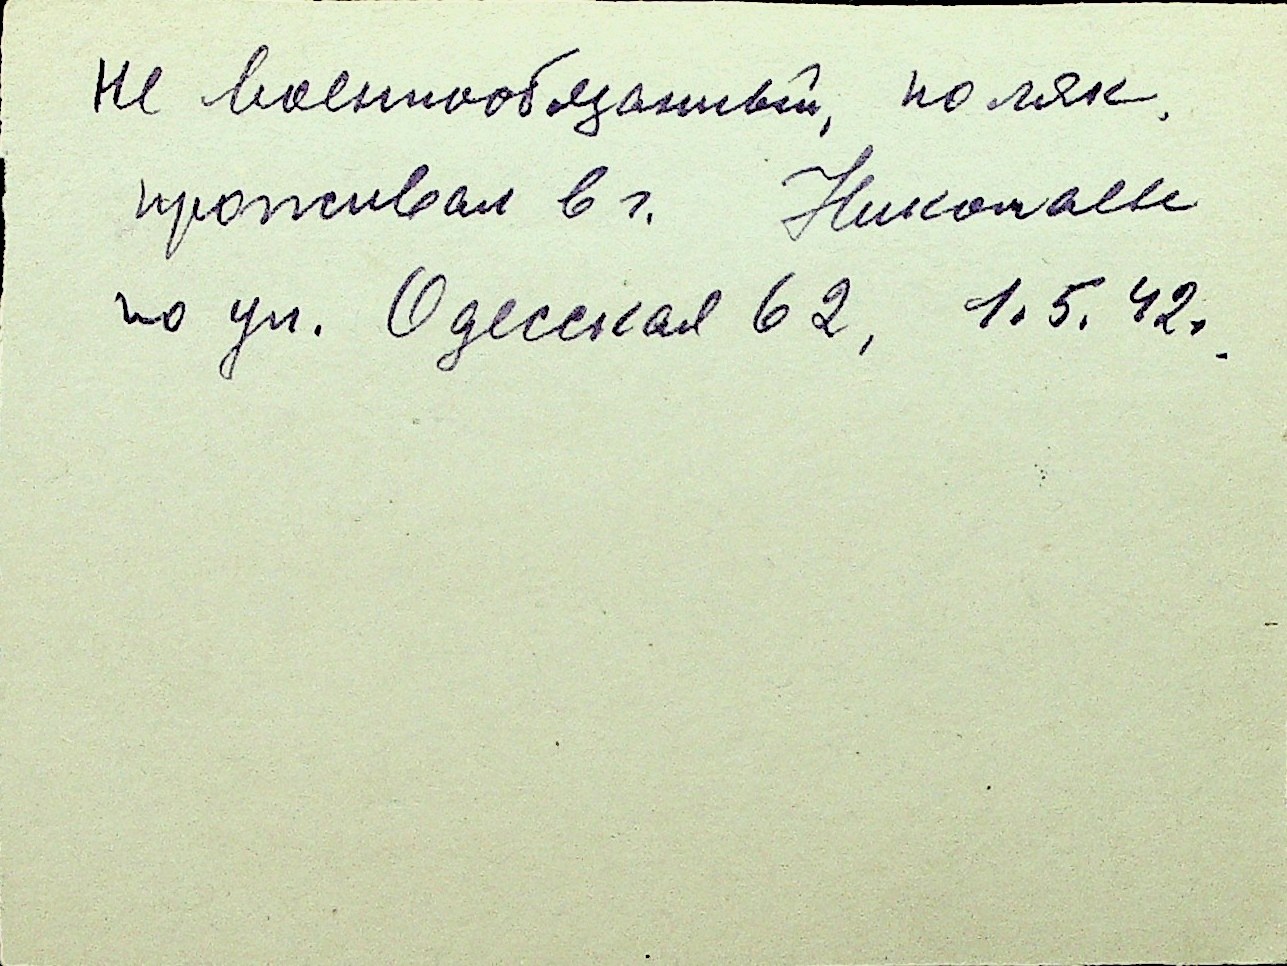 Не военнообязанный, поляк.
проживал в г. Николаеве
по ул. Одесская 62, 1.5.42.